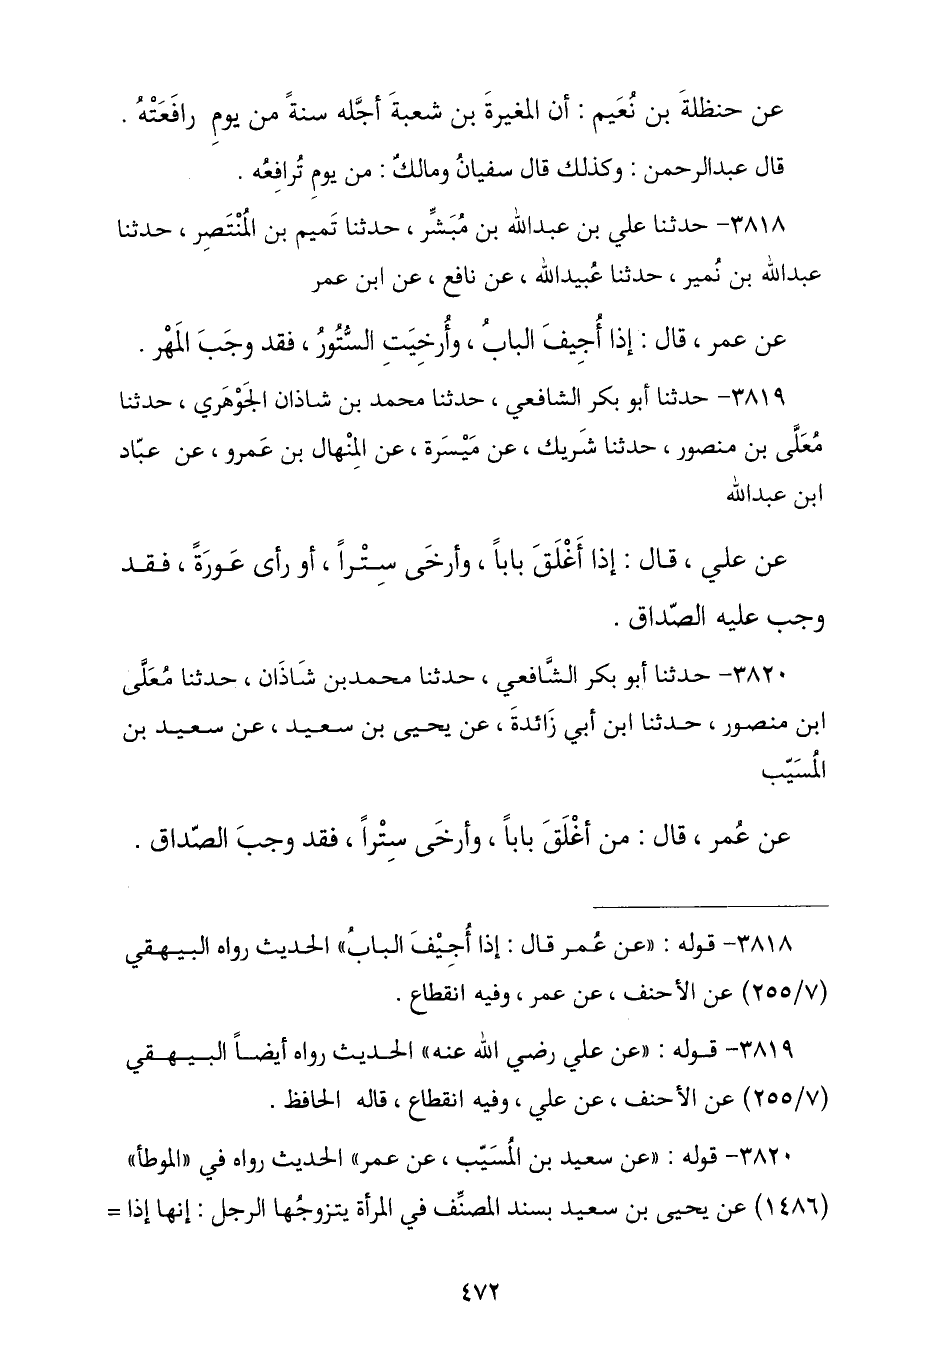 عن حنظلةَ بن نُعَيم : أن المغيرةَ بن شعبةَ أجَّله سنةً من يومِ رافَعَتْهُ .
قال عبدالرحمن : وكذلك قال سفيانُ ومالكٌ : من يومِ تُرافِعُه .
٣٨١٨- حدثنا علي بن عبدالله بن مُبَشِّر ، حدثنا تَميم بن الُمْنتَصِر ، حدثنا
عبدالله بن نُمير ، حدثنا عُبيدالله ، عن نافع ، عن ابن عمر
عن عمر ، قال : إذا أُجِيفَ البابُ ، وأُرخِيَتِ السُّتُورُ ، فقد وجَبَ الَمهْر .
٣٨١٩- حدثنا أبو بكر الشافعي ، حدثنا محمد بن شاذان الجَوْهَري ، حدثنا
مُعَلَّى بن منصور ، حدثنا شَريك ، عن مَيْسَرة ، عن المِنْهال بن عَمرو ، عن عبّاد
ابن عبدالله
عن علي ، قال : إذا أَغْلَقَ باباً ، وأرخَى سِتْراً ، أو رأى عَورَةً ، فقد
وجب عليه الصّداق .
٣٨٢٠- حدثنا أبو بكر الشَّافعي ، حدثنا محمدبن شَاذَان ، حدثنا مُعَلَّى
ابن منصور ، حدثنا ابن أبي زَائدةَ ، عن يحيى بن سعيد ، عن سعيد بن
الُمسَيّب
عن عُمر ، قال : من أغْلَقَ باباً ، وأرخَى سِتْراً ، فقد وجبَ الصّداق .
٣٨١٨- قوله : «عن عُمر قال : إذا أُجِيْفَ البابُ» الحديث رواه البيهقي
(٢٥٥/٧) عن الأحنف ، عن عمر ، وفيه انقطاع .
٣٨١٩- قوله : «عن علي رضي الله عنه» الحديث رواه أيضاً البيهقي
(٢٥٥/٧) عن الأحنف ، عن علي ، وفيه انقطاع ، قاله الحافظ .
٣٨٢٠- قوله : «عن سعيد بن الُمسَيّب ، عن عمر» الحديث رواه في «الموطأ»
(١٤٨٦) عن يحيى بن سعيد بسند المصنِّف في المرأة يتزوجُها الرجل : إنها إذا =
٤٧٢